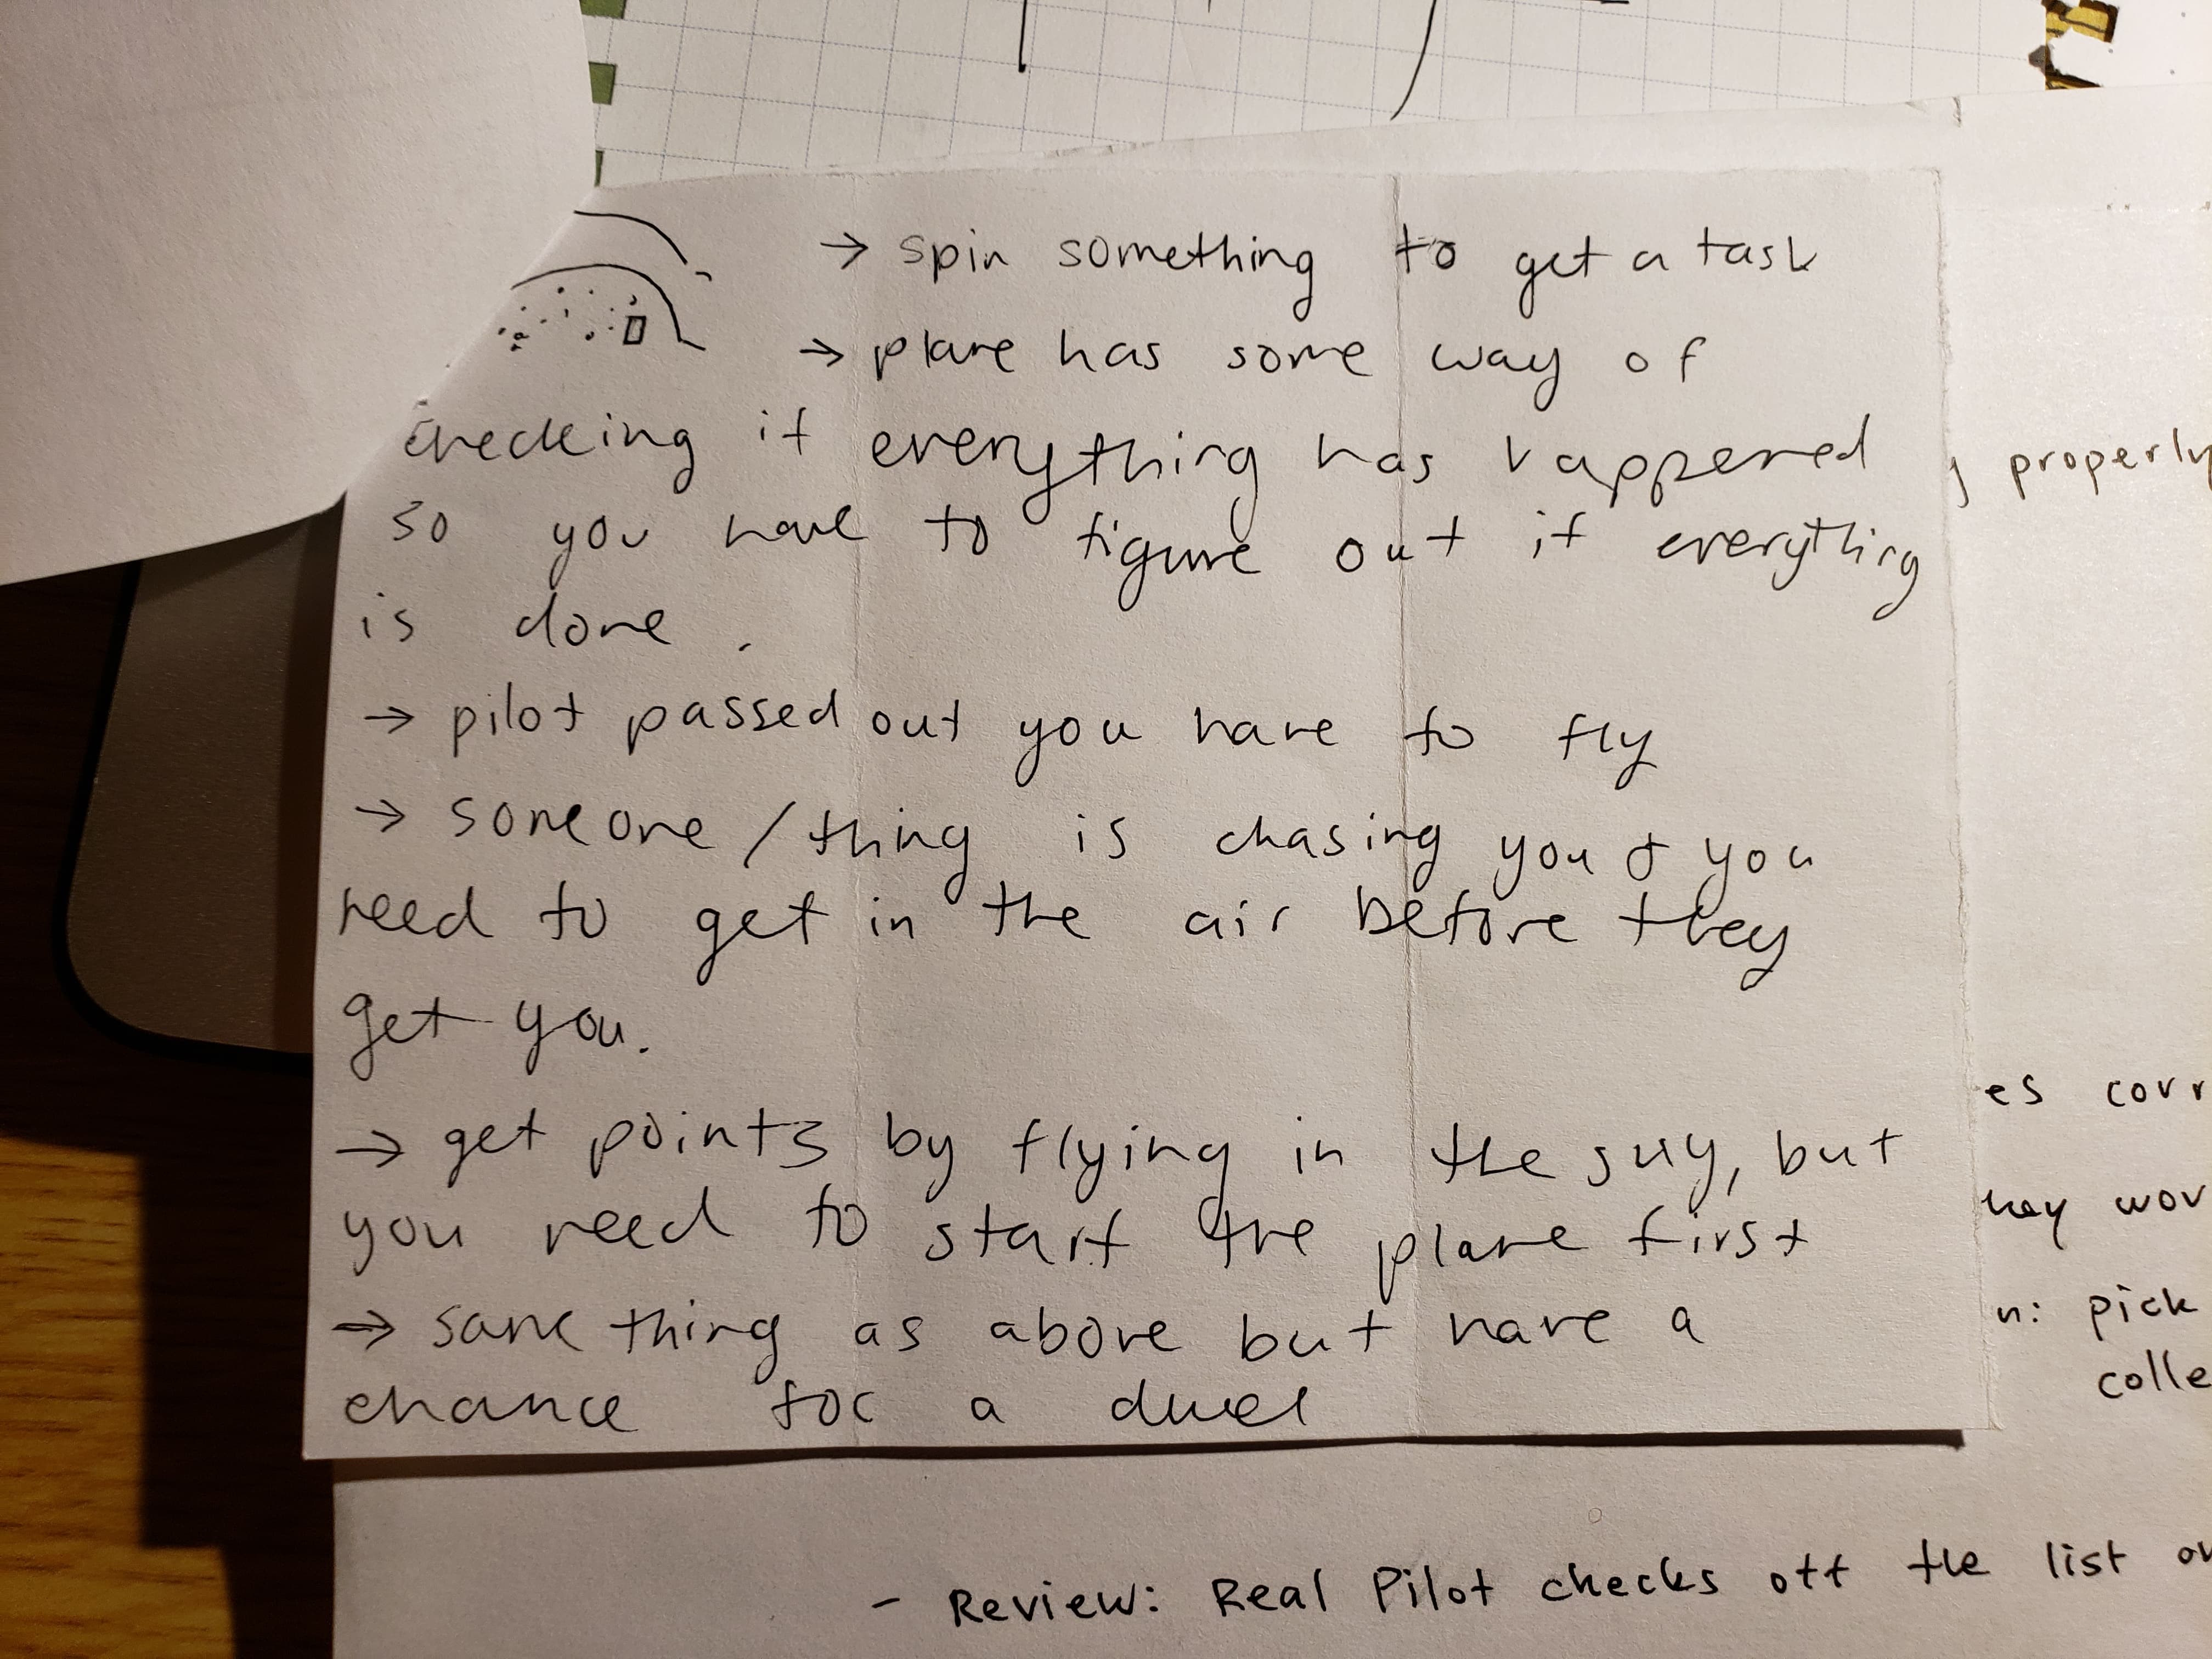 → spin something to get a task
→ plane has some way of
checking if everything has happened
so you have to figure out if everything
is done.
→ pilot passed out you have to fly
→ someone/thing is chasing you & you
need to get in the air before they
get you.
→ get points by flying in the sky, but
you need to start the plane first
→ same thing as above but have a
chance for a duel
properly
es corr
hey wor
n: pick
colle
- Review: Real Pilot checks off the list